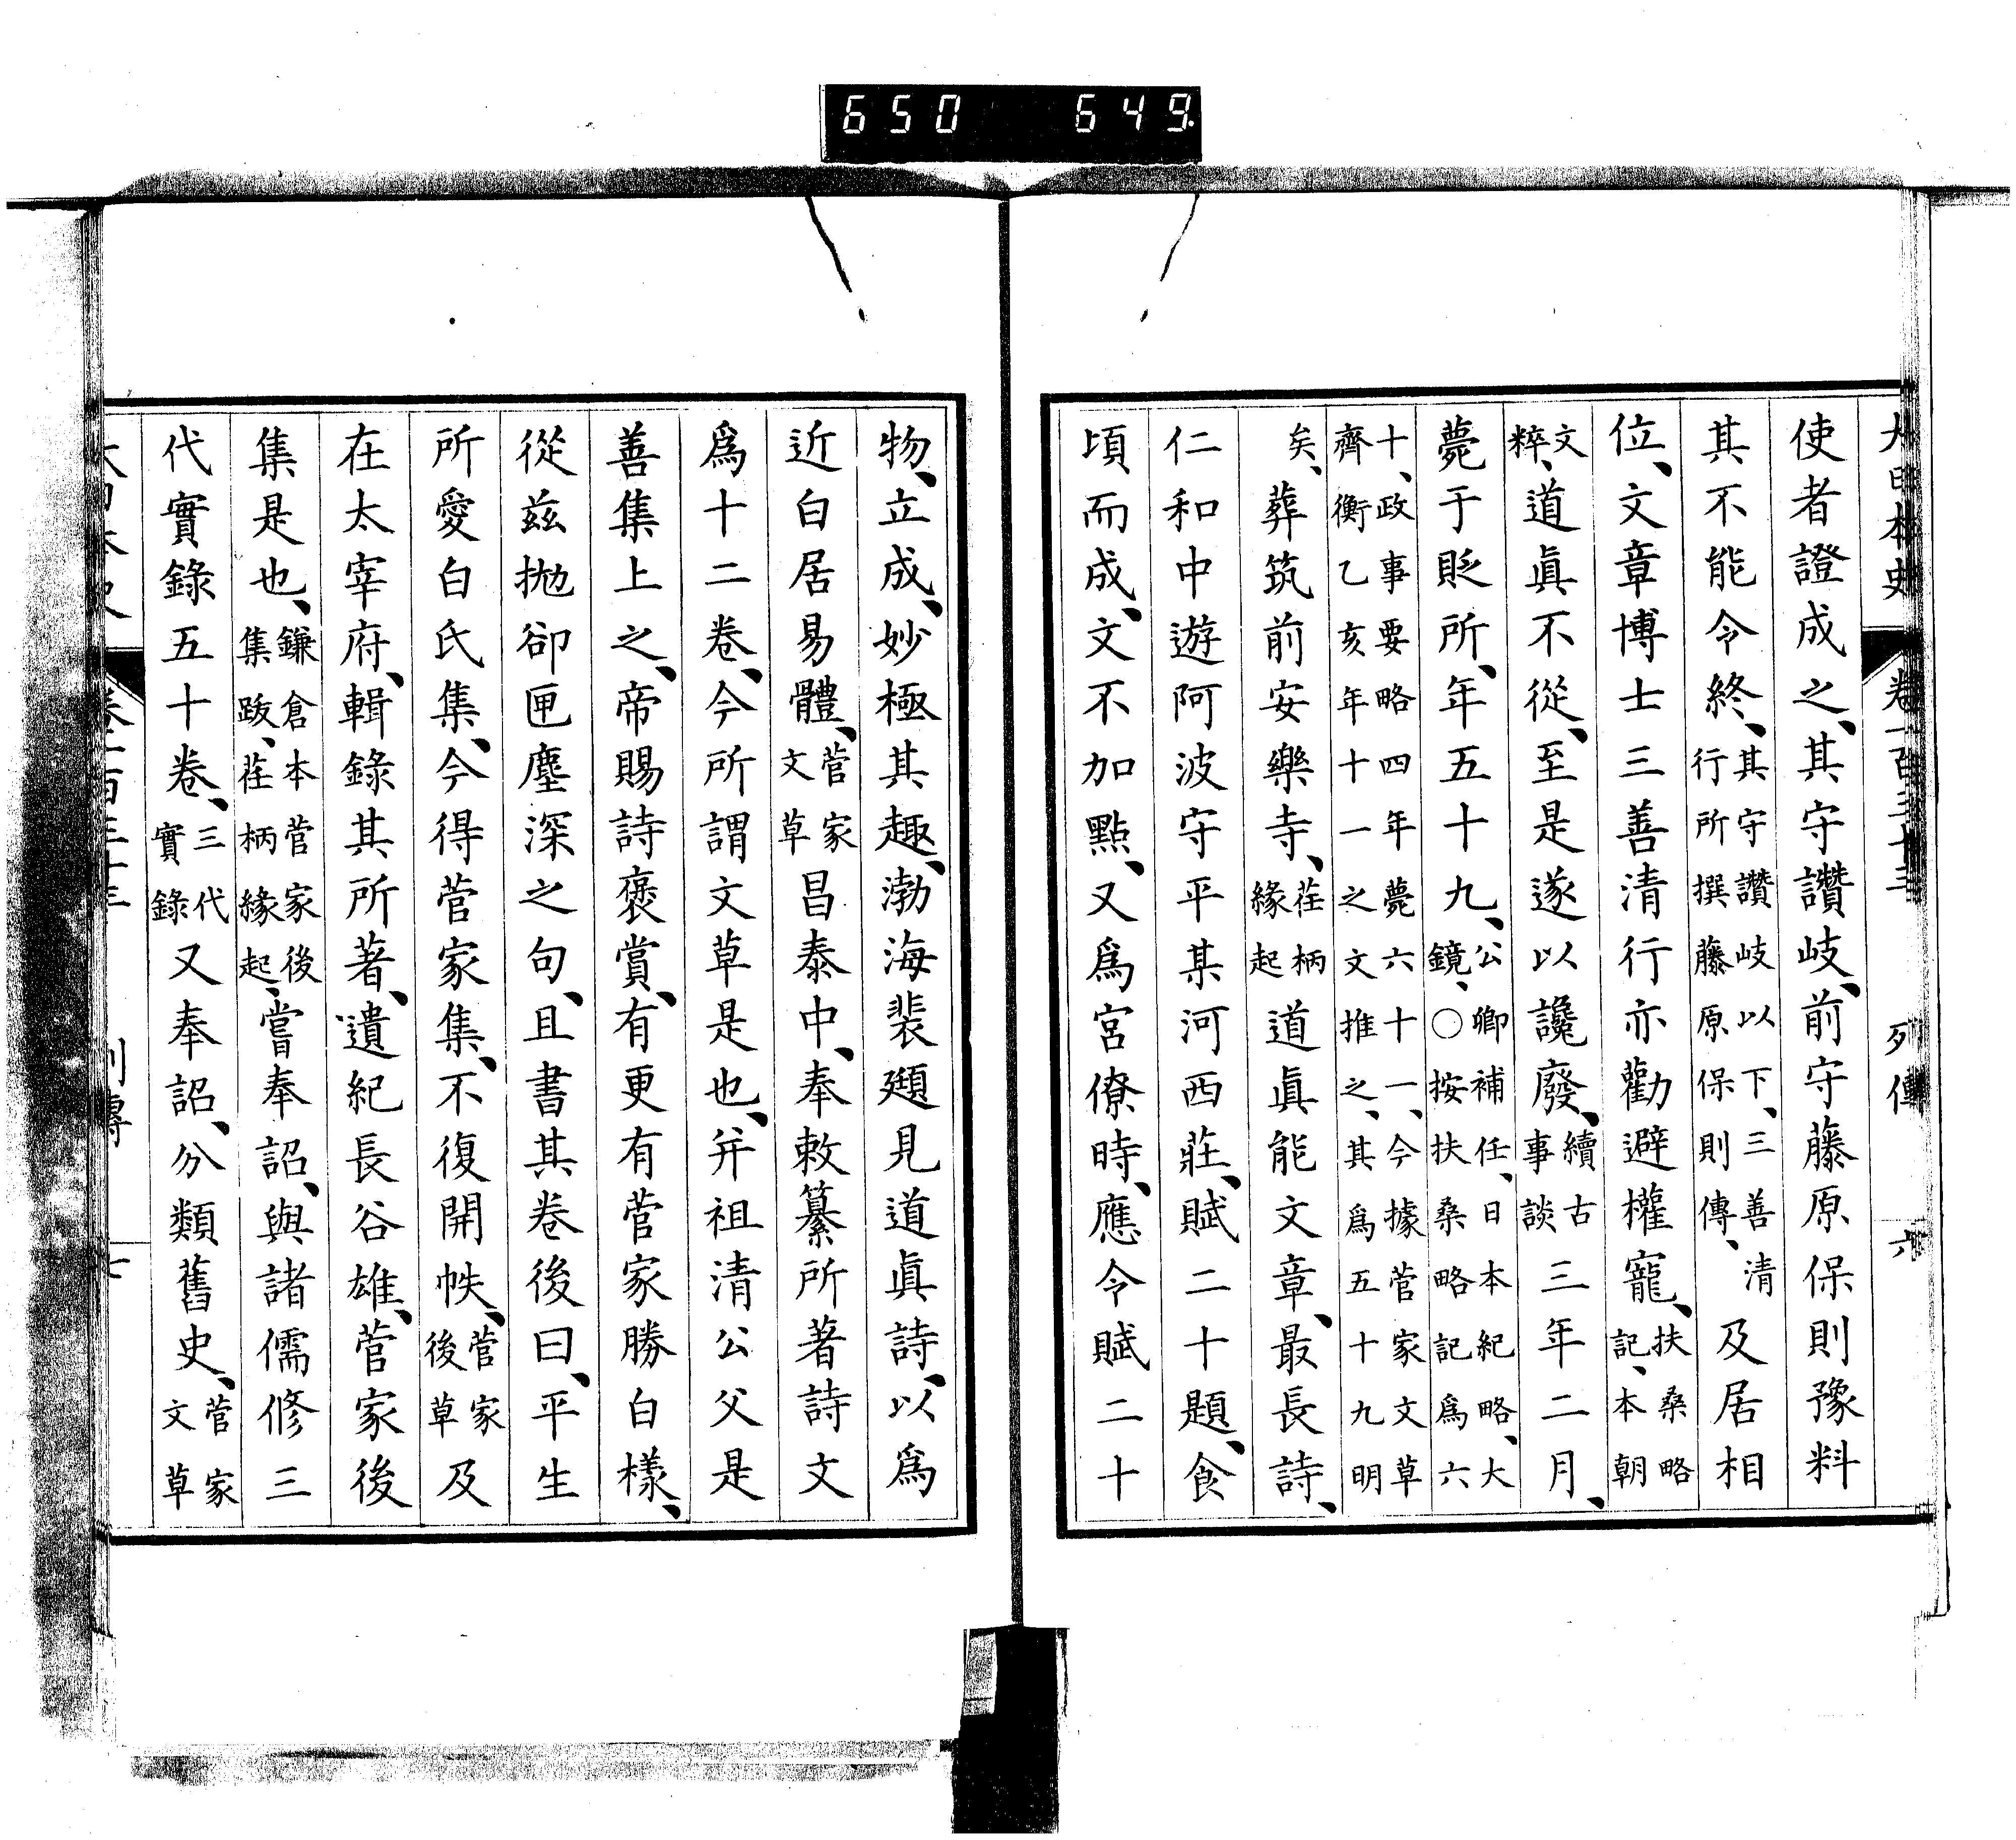 650 649
大日本史 卷一百三十三 列傳 六
使者證成之、其守讚岐、前守藤原保則豫料
其不能令終、其守讚岐以下、三善清行所撰藤原保則傳、及居相
位、文章博士三善清行亦勸避權寵、扶桑略記、本朝
文粹、道眞不從、至是遂以讒廢、續古事談三年二月、
薨于貶所、年五十九、公卿補任、日本紀略、大鏡、〇按扶桑略記爲六
十、政事要略四年薨六十一、今據菅家文草齊衡乙亥年十一之文推之、其爲五十九明
矣、葬筑前安樂寺、荏柄緣起道眞能文章、最長詩、
仁和中遊阿波守平某河西莊、賦二十題、食
頃而成、文不加點、又爲宮僚時、應令賦二十
物、立成、妙極其趣、渤海裴頲見道眞詩、以爲
近白居易體、菅家文草昌泰中、奉敕纂所著詩文
爲十二卷、今所謂文草是也、并祖清公父是
善集上之、帝賜詩褒賞、有更有菅家勝白樣、
從茲拋卻匣塵深之句、且書其卷後曰、平生
所愛白氏集、今得菅家集、不復開帙、菅家後草及
在太宰府、輯錄其所著、遺紀長谷雄、菅家後
集是也、鎌倉本菅家後集跋、荏柄緣起、嘗奉詔、與諸儒修三
代實錄五十卷、三代實錄又奉詔、分類舊史、菅家文草
大日本史 卷一百三十三 列傳 七